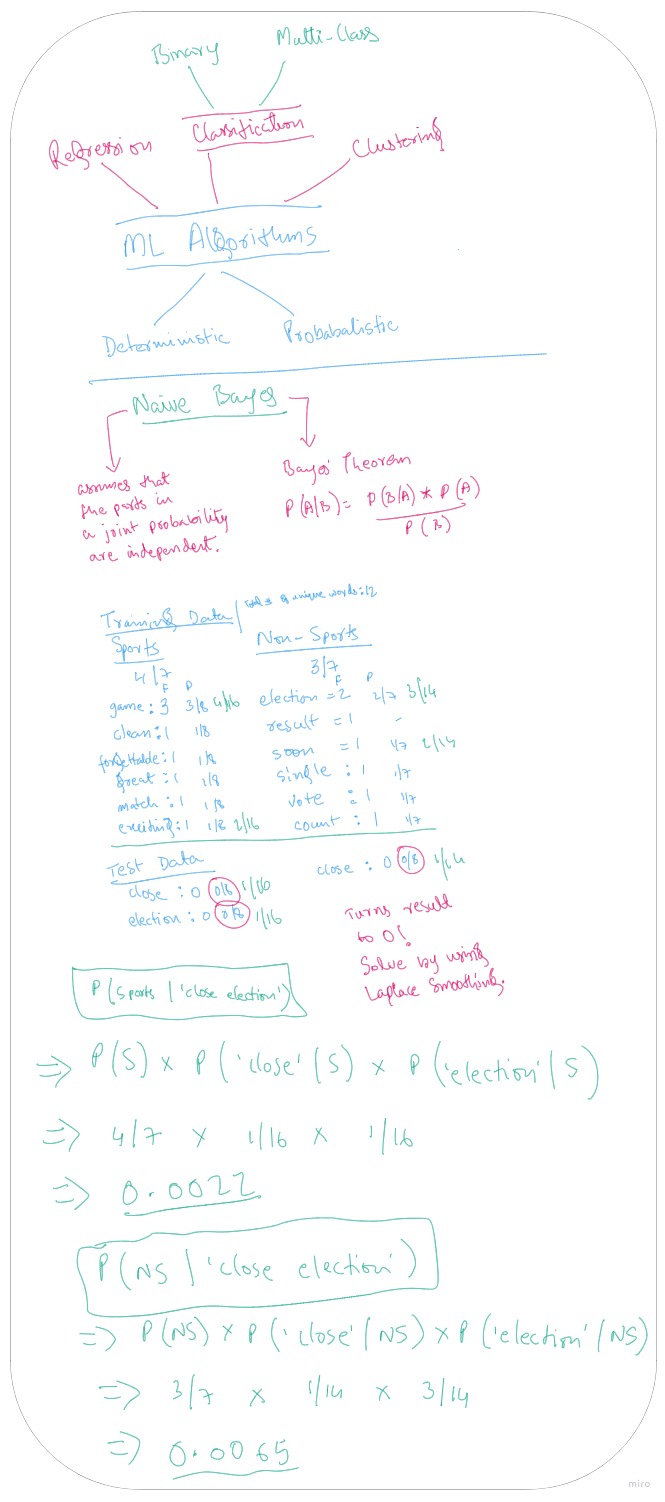 Binary Multi-Class
Classification
Regression Clustering
ML Algorithms
Deterministic Probabalistic
Naive Bayes
assumes that
the parts in
a joint probability
are independent.
Bayes' Theorem
P(A/B) = P(B/A) * P(A)
P(B)
Training Data
Total # of unique words:12
Sports
4/7
F P
game : 3 3/8 4/16
clean : 1 1/8
forgettable : 1 1/8
great : 1 1/8
match : 1 1/8
exciting : 1 1/8 2/16
Non-Sports
3/7
F P
election = 2 2/7 3/14
result = 1 -
soon = 1 1/7 2/14
single : 1 1/7
vote : 1 1/7
count : 1 1/7
Test Data
close : 0 0/8 1/16
election : 0 0/8 1/16
close : 0 0/8 1/14
Turns result
to 0!
Solve by using
Laplace Smoothing.
P(Sports | 'close election')
=> P(S) x P('close' | S) x P('election' | S)
=> 4/7 x 1/16 x 1/16
=> 0.0022
P(NS | 'close election')
=> P(NS) x P('close' | NS) x P('election' | NS)
=> 3/7 x 1/14 x 3/14
=> 0.0065
miro